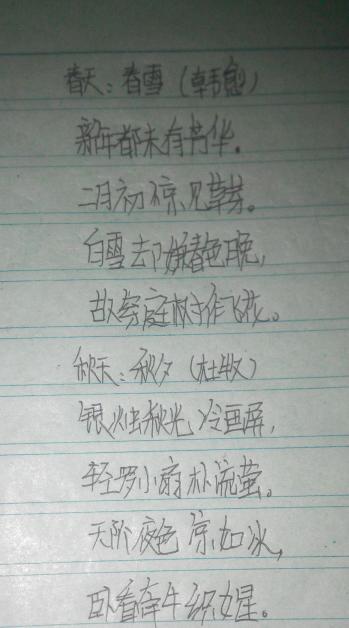 春天：春雪（韩愈）
新年都未有芳华，
二月初惊见草芽。
白雪却嫌春色晚，
故穿庭树作飞花。
秋天：秋夕（杜牧）
银烛秋光冷画屏，
轻罗小扇扑流萤。
天阶夜色凉如冰，
卧看牵牛织女星。